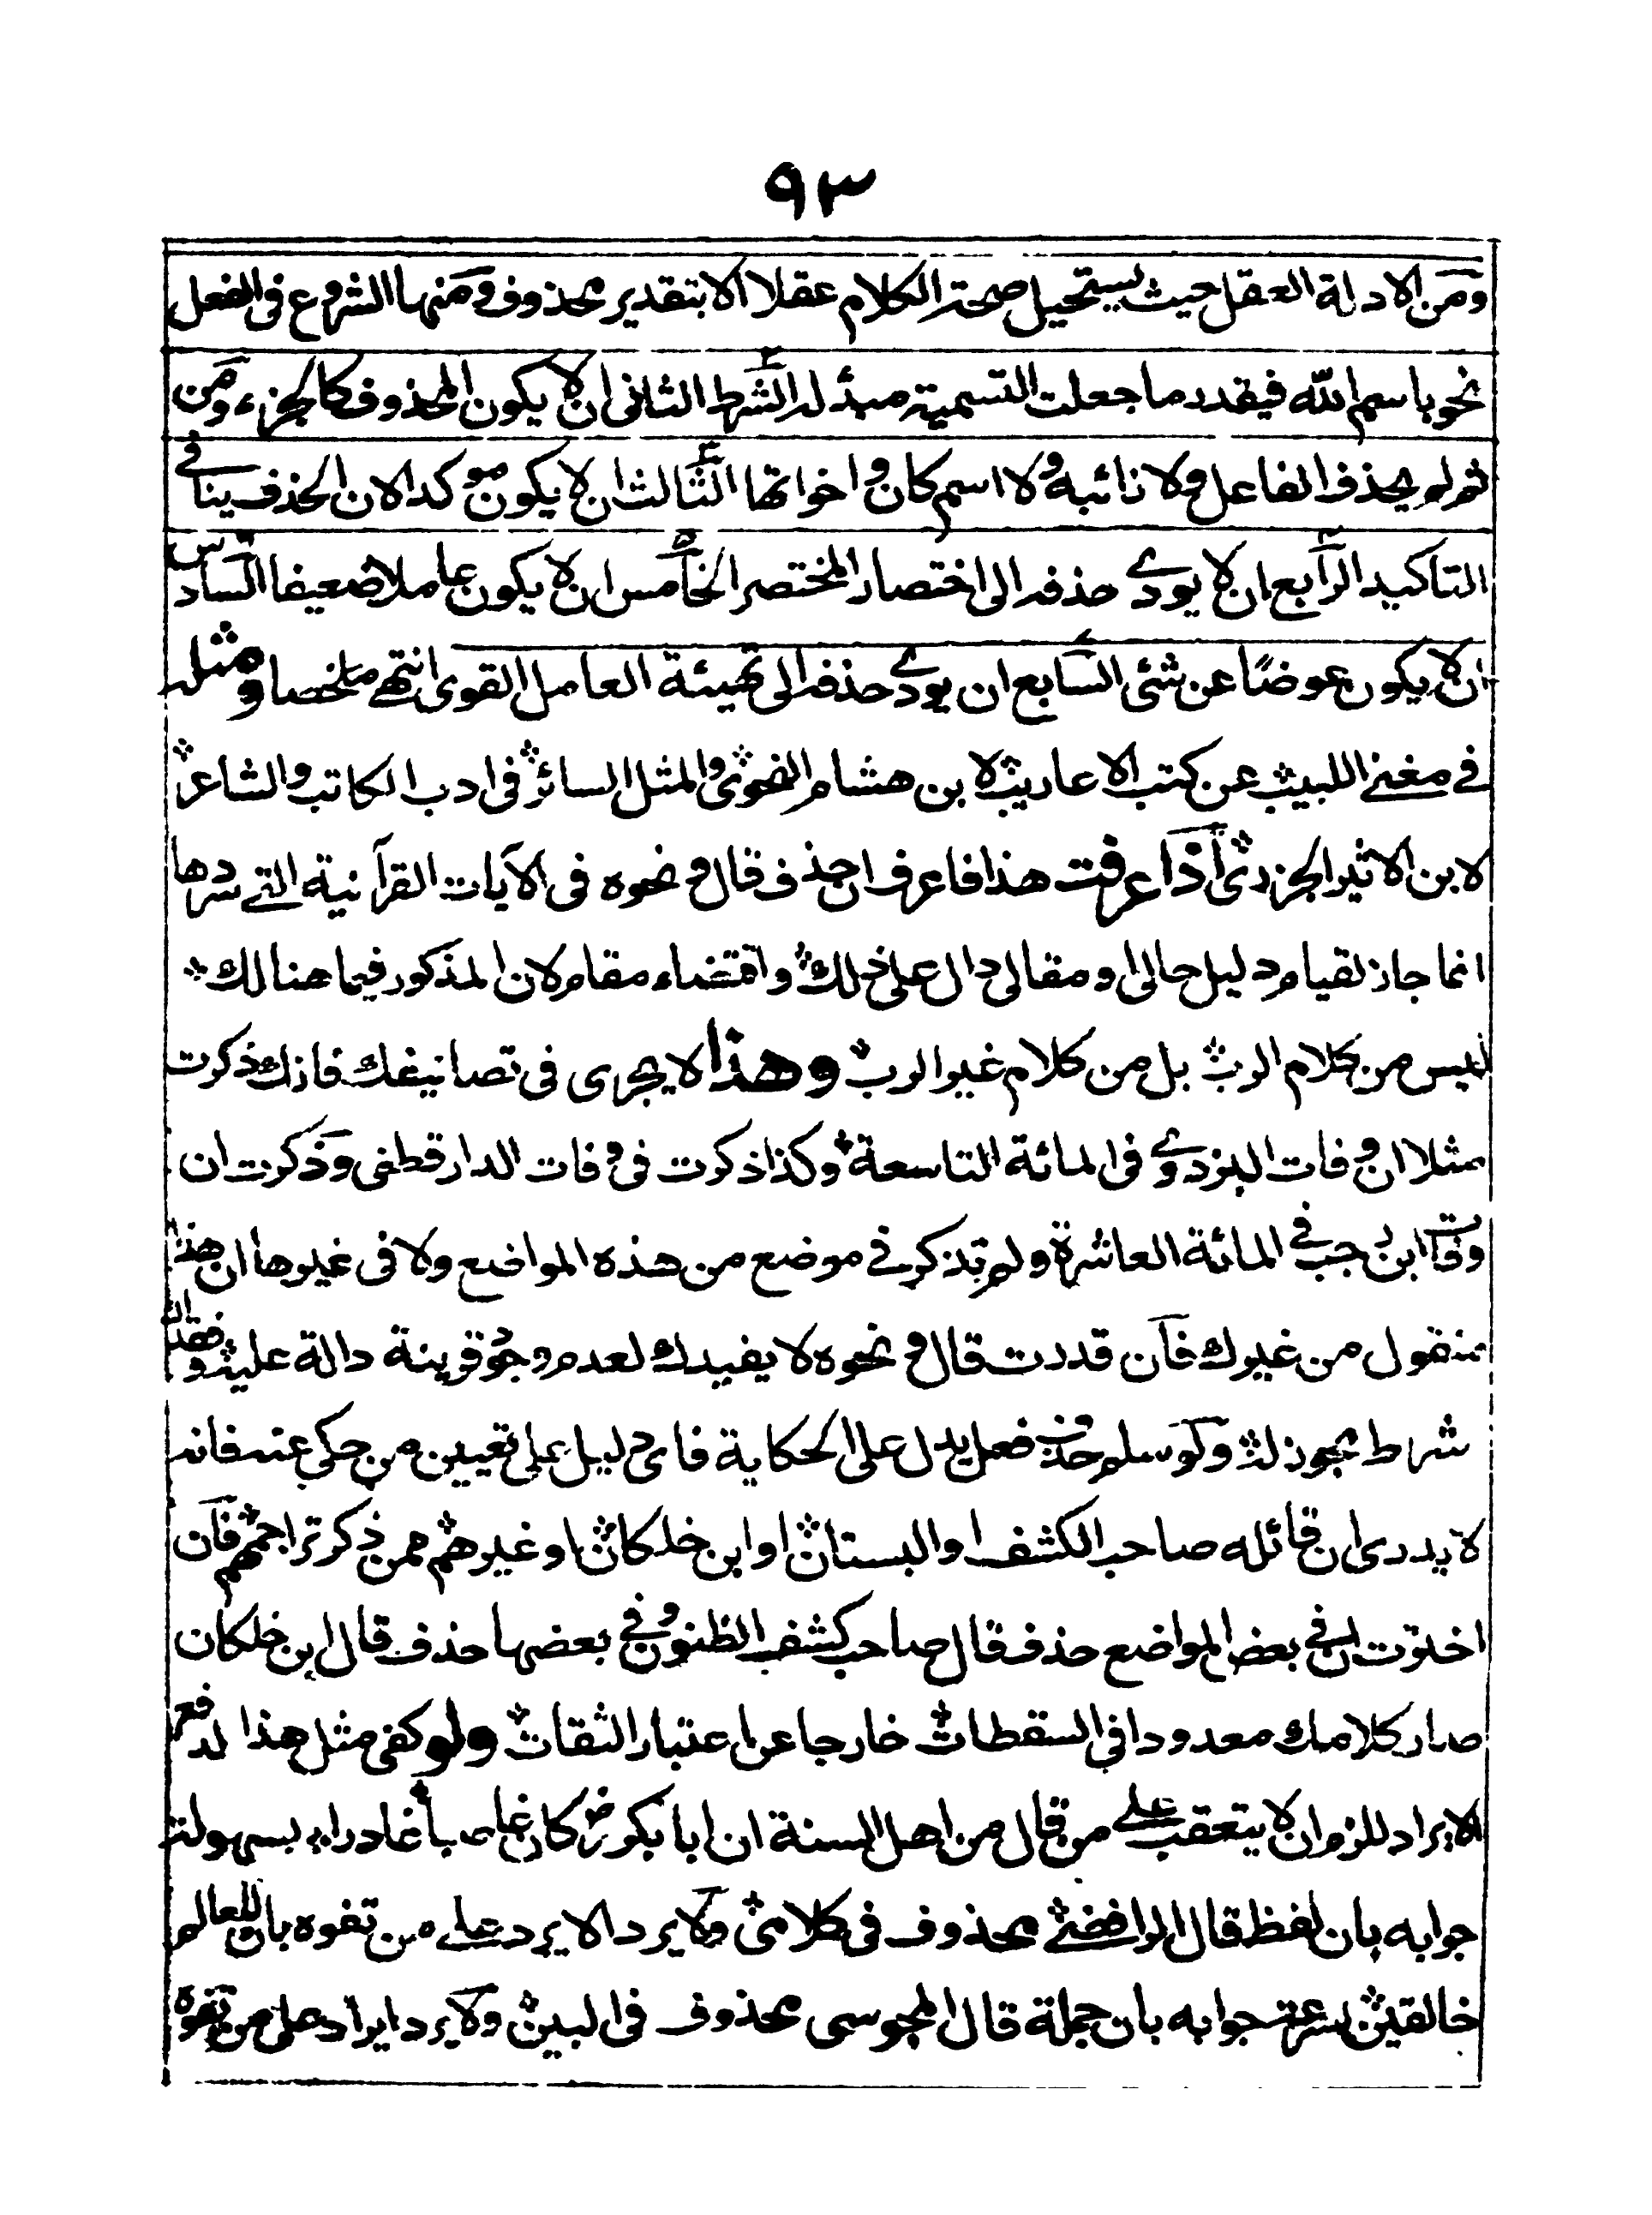 ٩٣
ومن الادلة العقل حيث يستحيل صحة الكلام عقلا الا بتقدير محذوف ومنها الشروع فى الفعل
نحو باسم الله فيقدر ما جعلت التسمية مبدأ له الشرط الثانى ان لا يكون المحذوف كالجزء ومن
ثم لم يحذف الفاعل ولا نائبه ولا اسم كان واخواتها الثالث ان لا يكون موكدا لان الحذف ينافي
التاكيد الرابع ان لا يودي حذفه الى اختصار المختصر الخامس ان لا يكون عاملا ضعيفا السادس
ان لا يكون عوضًا عن شئى السابع ان يودي حذفه الى تهيئة العامل القوى انتهى ملخصا ومثله
في مغنى اللبيب عن كتب الاعاريب لابن هشام النحوى والمثل السائر فى ادب الكاتب والشاعر
لابن الاثير الجزرى اذا عرفت هذا فاعرف ان حذف قال ونحوه فى الآيات القرآنية التى سردها
انما جاز لقيام دليل حالى او مقالى دال على ذلك واقتضاء مقام لان المذكور فيما هنالك
ليس من كلام الرب بل من كلام غير الرب وهذا لا يجرى فى تصانيفك فانك ذكرت
مثلا ان وفات البزدوي فى المائة التاسعة وكذا ذكرت فى وفات الدارقطنى وذكرت ان
وفات ابن رجب في المائة العاشرة ولم تذكر في موضع من هذه المواضع ولا فى غيرها ان هذا
منقول من غيرك فان قدرت قال ونحوه لا يفيدك لعدم وجود قرينة دالة عليه وفقدان
شرط مجوز له ولو سلم حذف فعل يدل على الحكاية فاى دليل على تعيين من حكى عنه فانه
لا يدرى ان قائله صاحب الكشف او البستان او ابن خلكان او غيرهم ممن ذكر تراجمهم فان
اخترت ان في بعض المواضع حذف قال صاحب كشف الظنون وفي بعضها حذف قال ابن خلكان
صار كلامك معدودا فى السقطات خارجا عن اعتبار الثقات ولو كفى مثل هذا لدفع
الايراد للزم ان لا يتعقب على من قال من اهل السنة ان ابا بكر رض كان غاصبا غادرا لسهولة
جوابه بان لفظ قال الرافضى محذوف فى كلامى ولا يرد الايرد على من تفوه بان للعالم
خالقين لسرعة جوابه بان جملة قال المجوسى محذوف فى البين ولا يرد ايراد على من تفوه